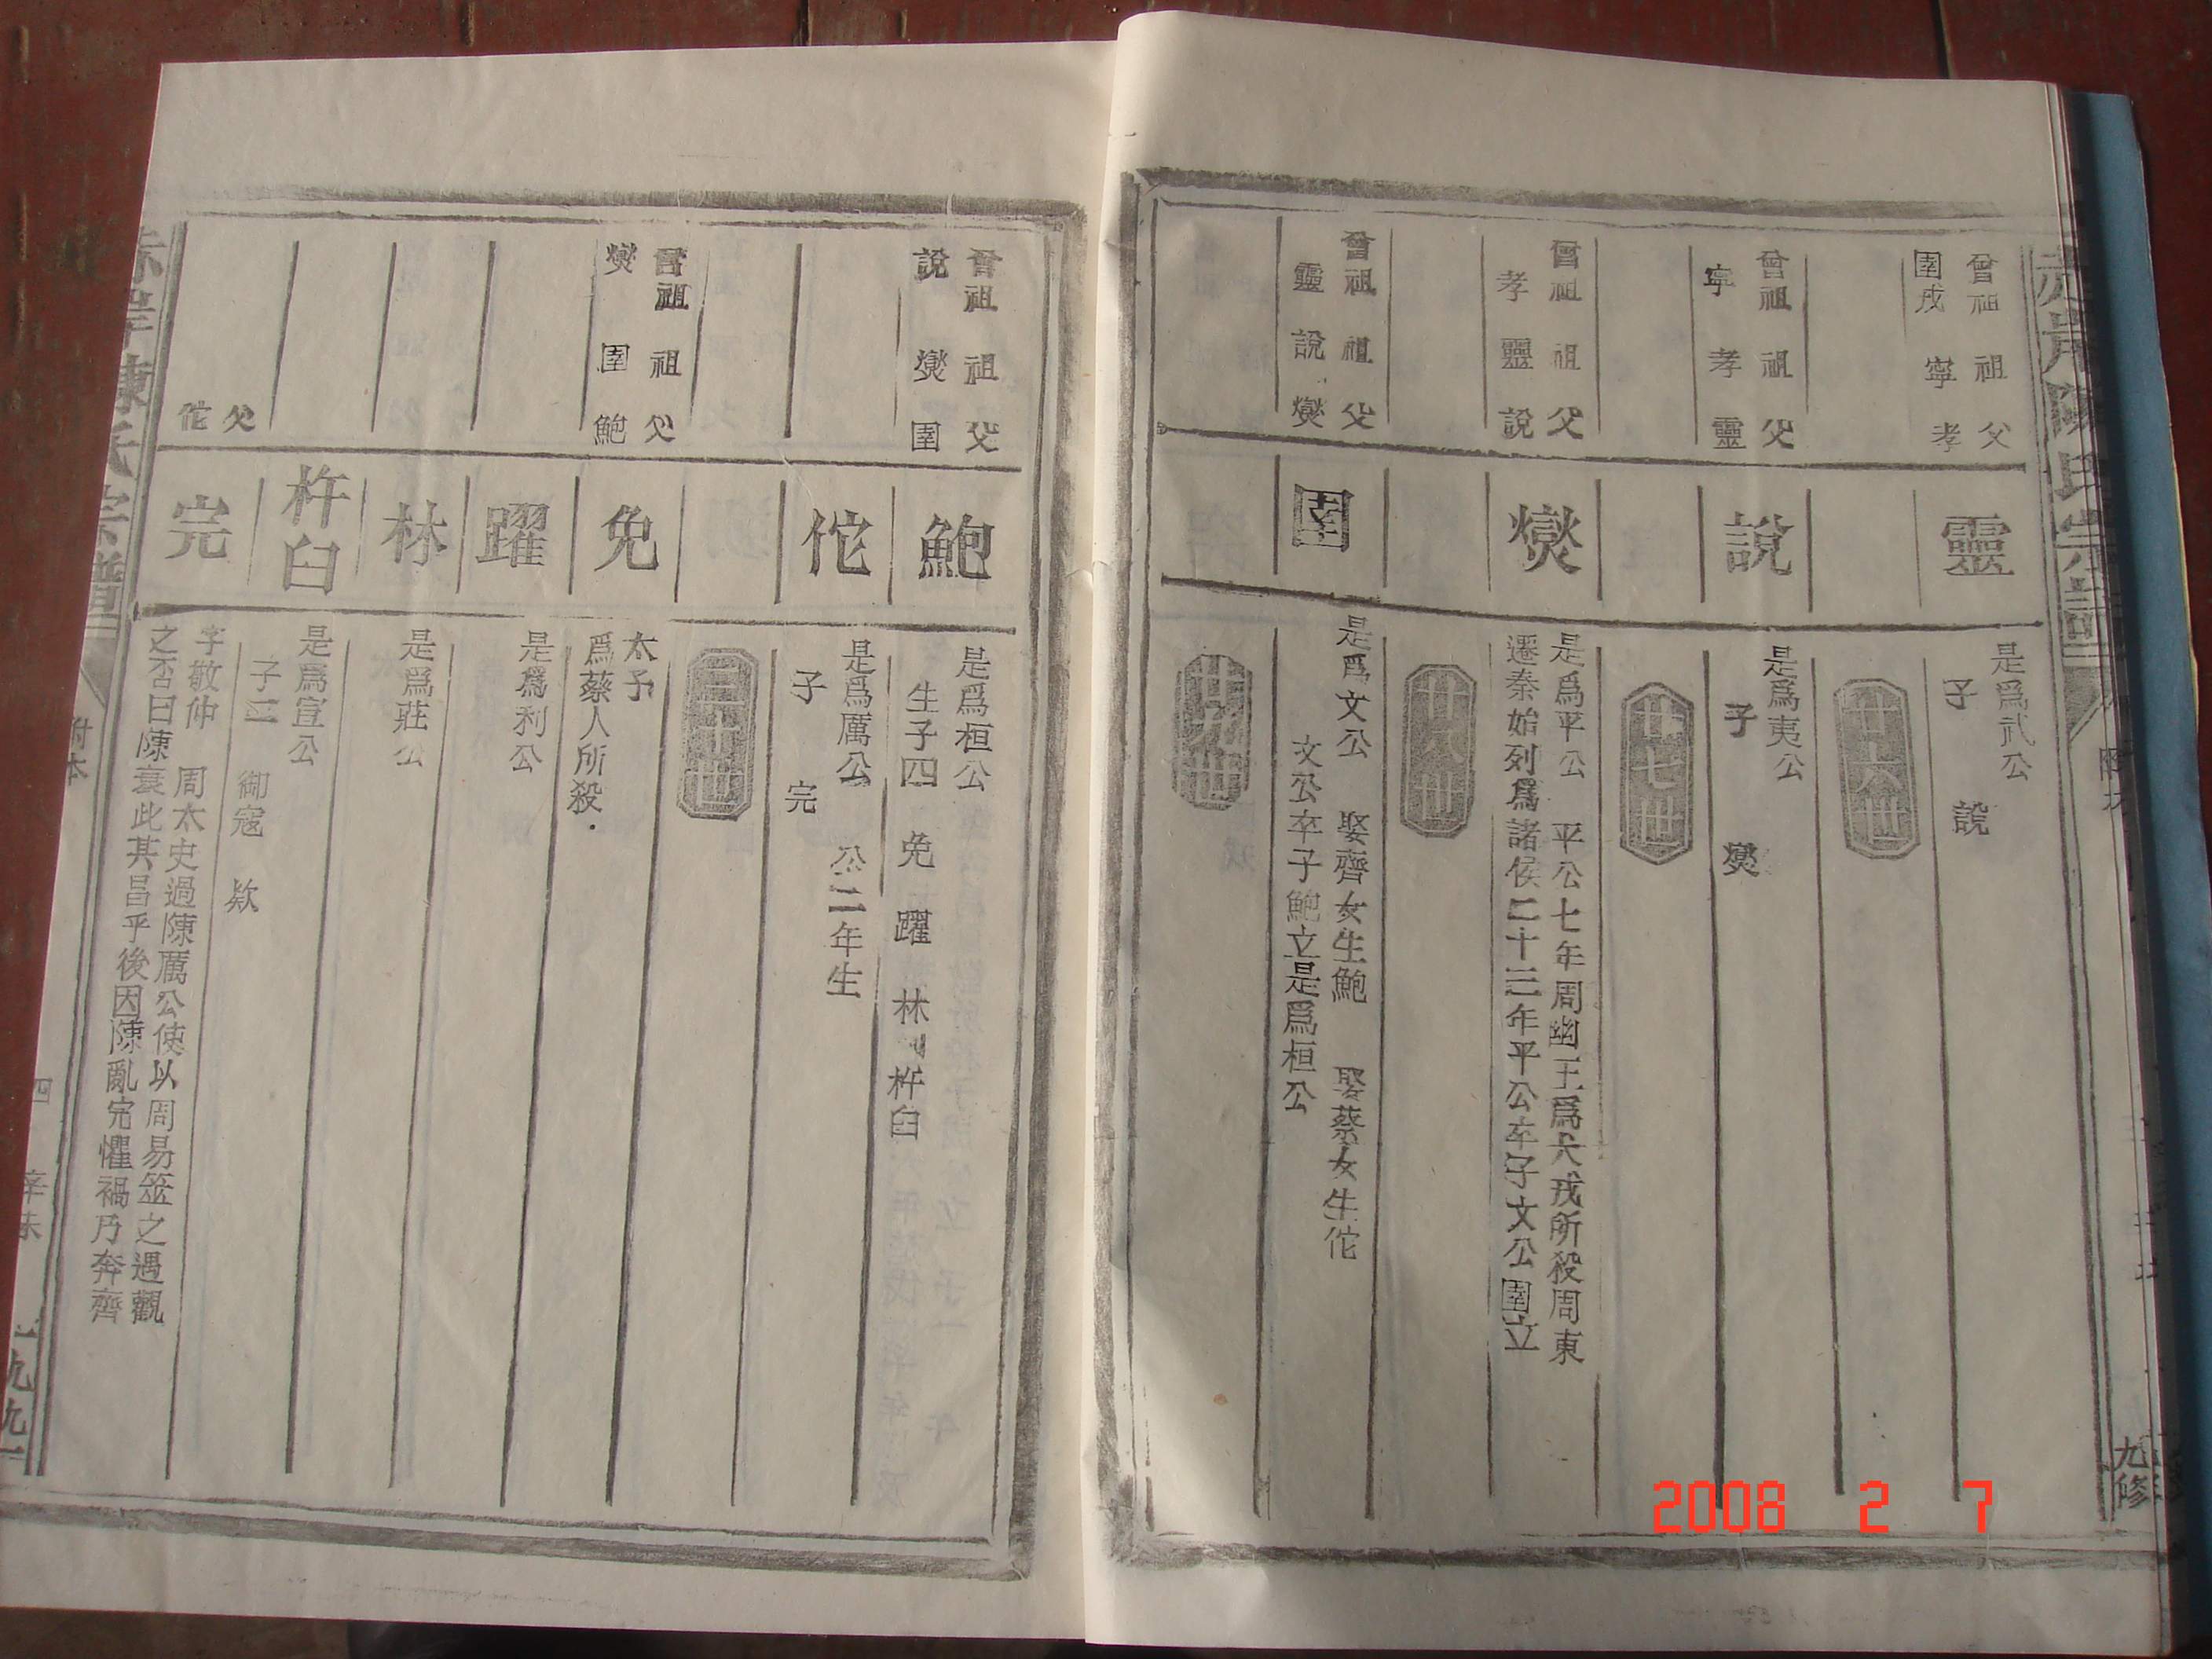 曾祖 祖 父
圉戎 寧 孝
靈
是爲武公
子 說
廿六世
曾祖 祖 父
寧 孝 靈
說
是爲夷公
子 燮
廿七世
曾祖 祖 父
孝 靈 說
燮
是爲平公 平公七年周幽王爲犬戎所殺周東
遷秦始列爲諸侯二十三年平公卒子文公圉立
廿八世
曾祖 祖 父
靈 說 燮
圉
是爲文公 娶齊女生鮑 娶蔡女生佗
文公卒子鮑立是爲桓公
廿九世
九修
曾祖 祖 父
說 燮 圉
鮑
是爲桓公
生子四 免 躍 林 杵臼
佗
是爲厲公 公二年生
子 完
三十世
曾祖 祖 父
燮 圉 鮑
免
太子
爲蔡人所殺
躍
是爲利公
林
是爲莊公
杵臼
是爲宣公
子二 御寇 欵
父
佗
完
字敬仲 周太史過陳厲公使以周易筮之遇觀
之否曰陳衰此其昌乎後因陳亂完懼禍乃奔齊
陳氏宗譜
附本
四
辛未
一九九一
2008 2 7